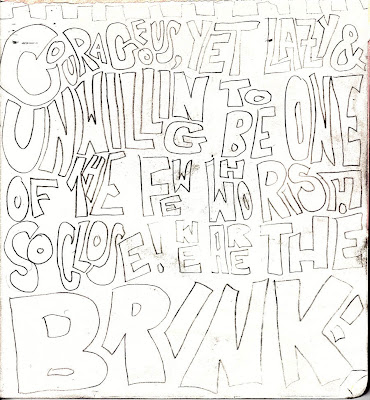 COURAGEOUS, YET LAZY &
UNWILLING TO BE ONE
OF THE FEW WHO
SO CLOSE! WE THE
BRINK.